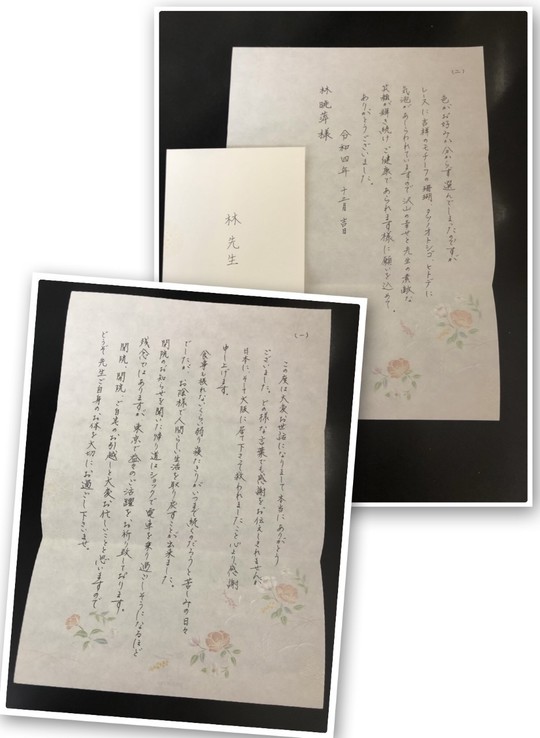 (一)
この度は大変お世話になりまして本当にありがとう
ございました。どの様な言葉でも感謝をお伝えしきれませんが
日本に、そして大阪に居て下さって救われましたこと心より感謝
申し上げます。
食事も取れないくらい弱り寝たきりがいつまで続くのだろうと苦しみの日々
でしたが、お陰様で人間らしい生活を取り戻すことが出来ました。
閉院のお知らせを聞いた帰り道はショックで電車を乗り過ごしそうになるほど
残念ではありますが、東京で益々のご活躍をお祈り致しております。
閉院、開院、ご自宅のお引越しと大変お忙しいことと思いますので
どうぞ先生ご自身のお体を大切にお過ごし下さいませ。
(二)
色がお好みか分からず選んでしまったのですが
レースに吉祥のモチーフの珊瑚、タツノオトシゴ、ヒトデに
気泡があしらわれていますので沢山の幸せと先生の素敵な
笑顔が輝き続け、ご健康であられます様に願いを込めて。
ありがとうございました。
令和四年 十二月 吉日
林暁萍様
林先生